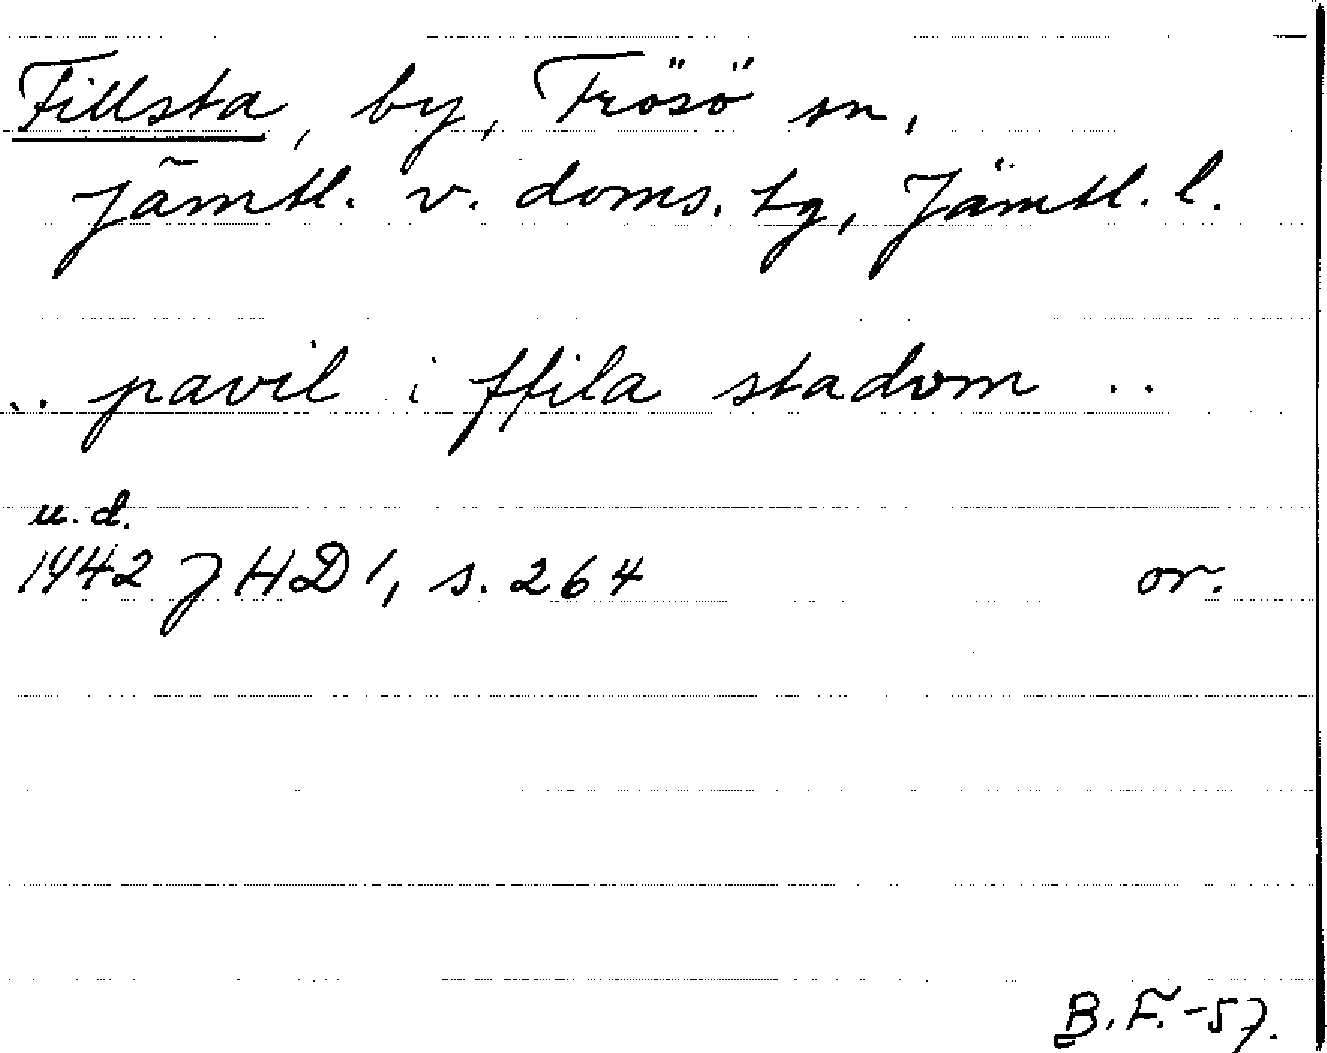 Fillsta, by, Frösö sn,
Jämtl. v. doms. tg, Jämtl. l.
.. pavil i ffila stadom ..
u. d.
1442 JHD 1, s. 264 or.
B. F. -57.